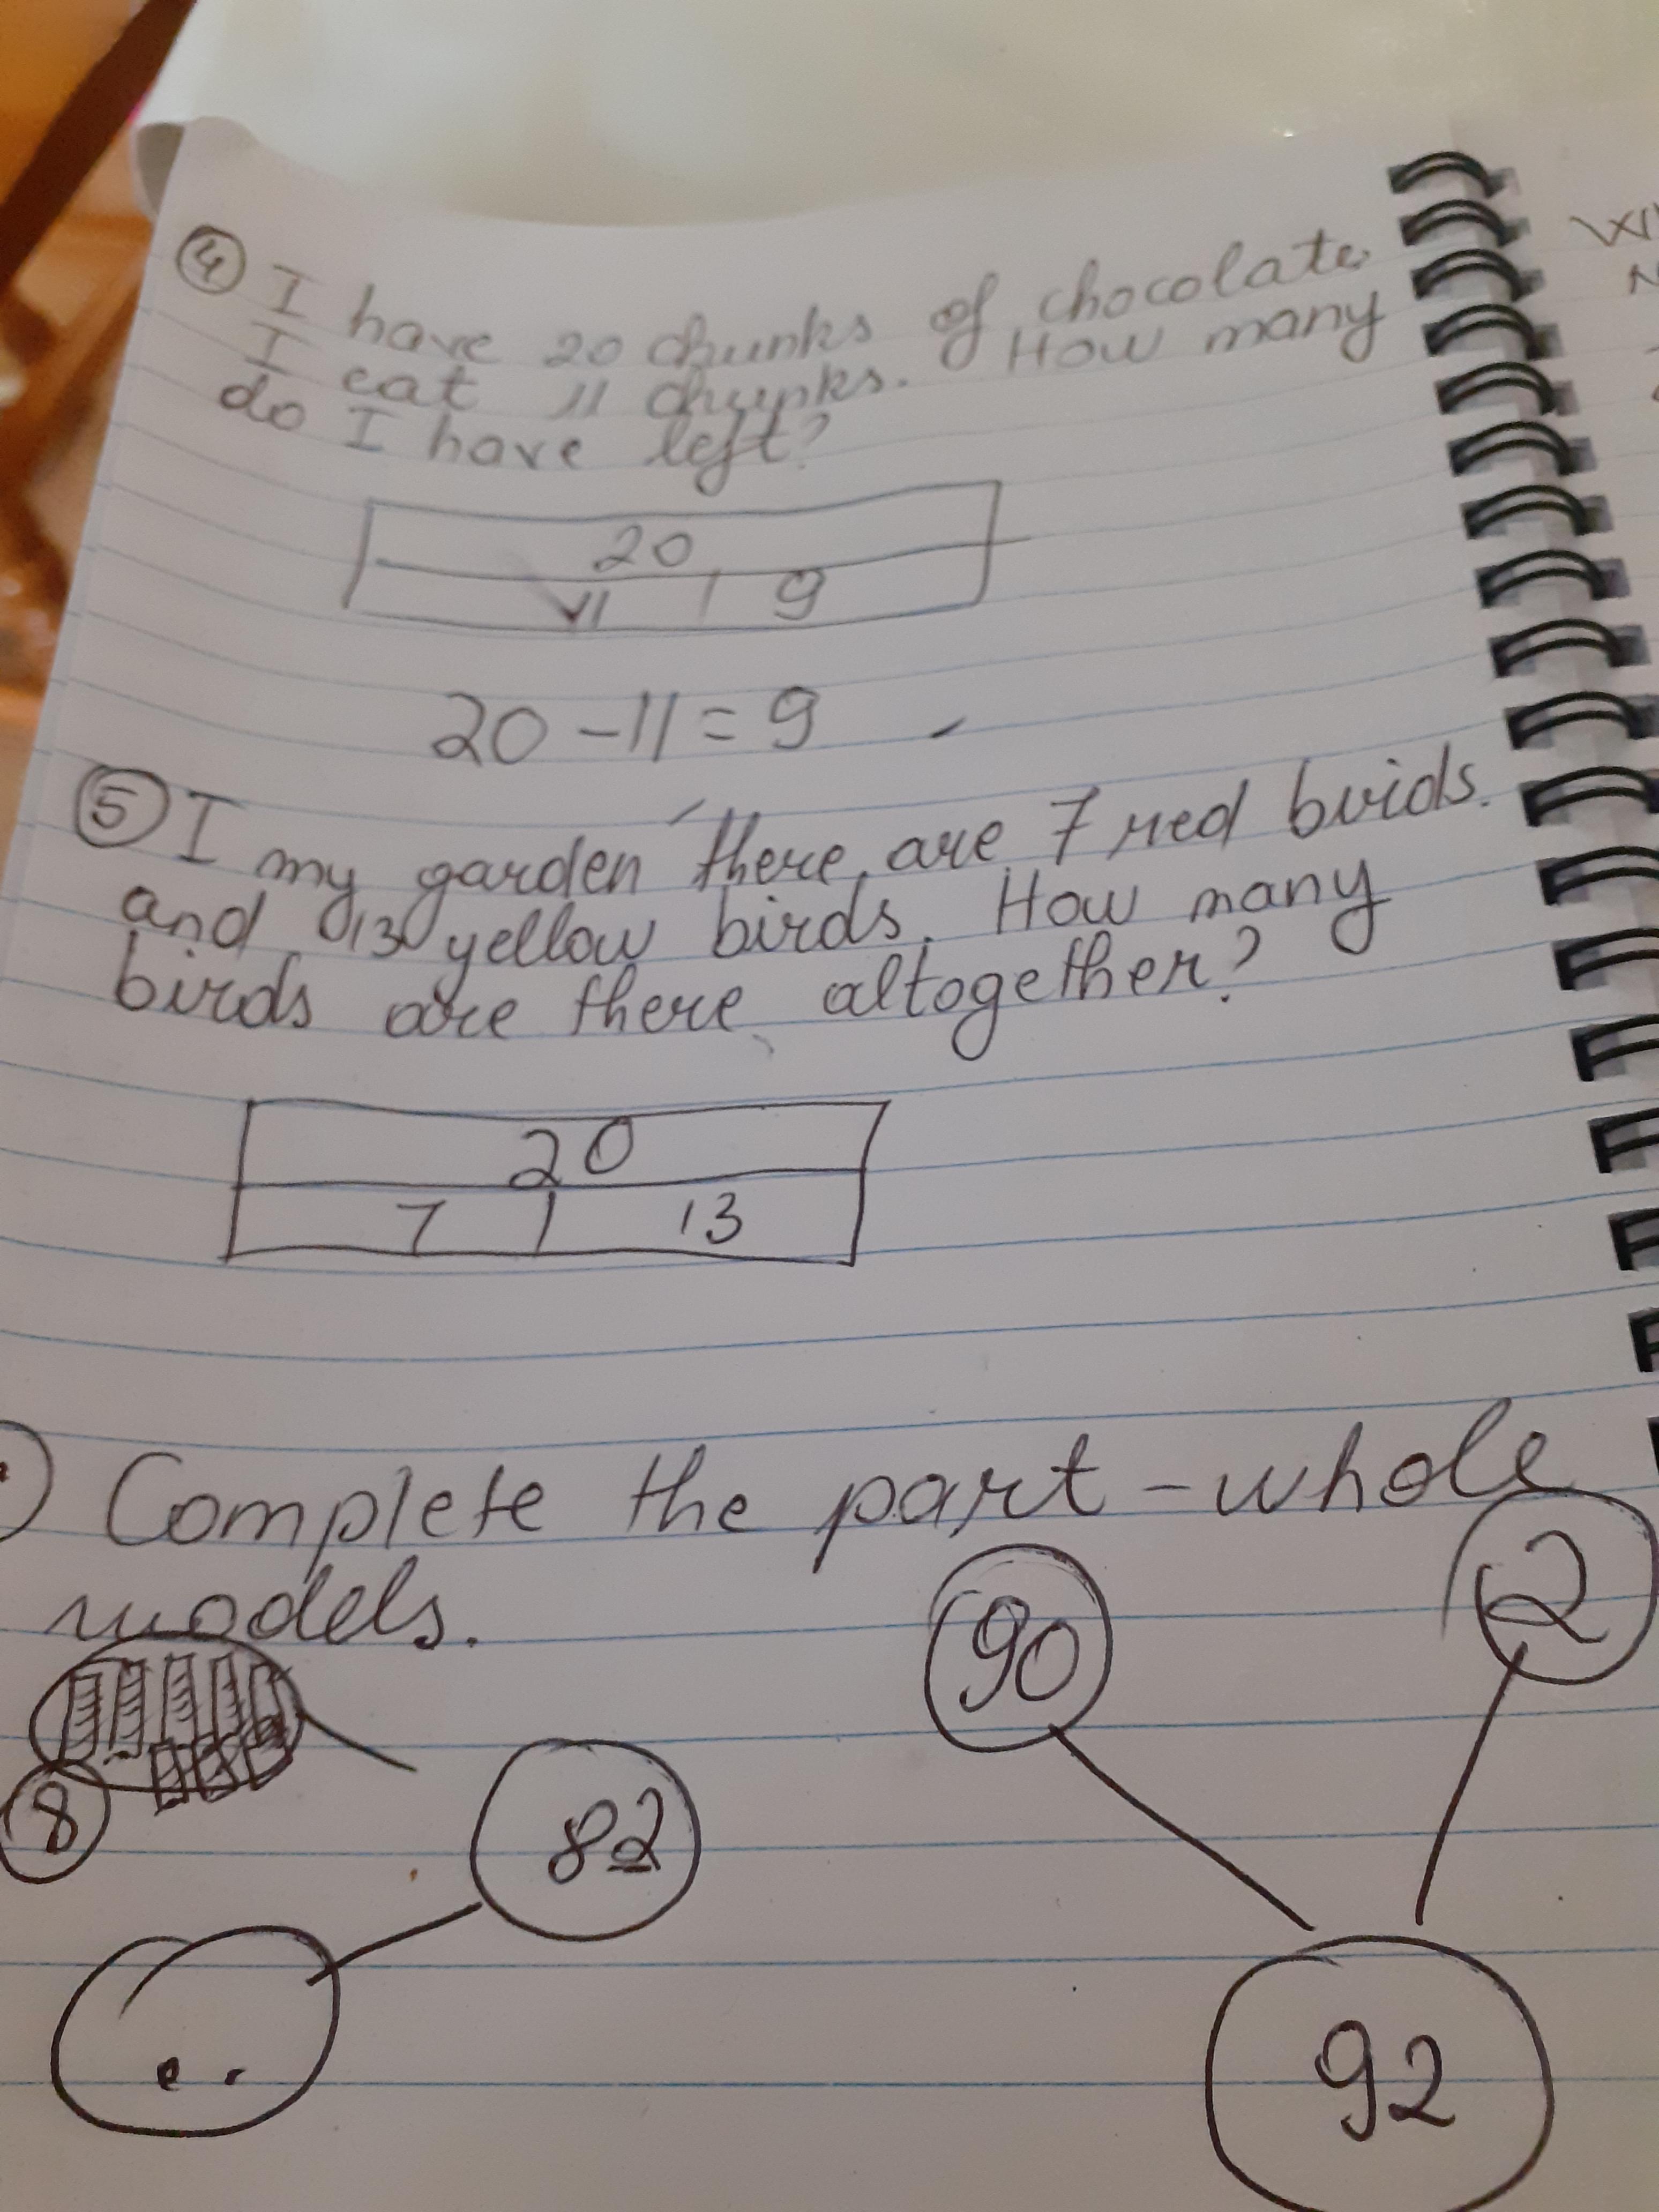 4 I have 20 chunks of chocolate.
I eat 11 chunks. How many
do I have left?
20
11 9
20 - 11 = 9
5 I my garden there are 7 red birds.
and 13 yellow birds. How many
birds are there altogether?
20
7 13
Complete the part-whole
models.
90 2
8 82
92